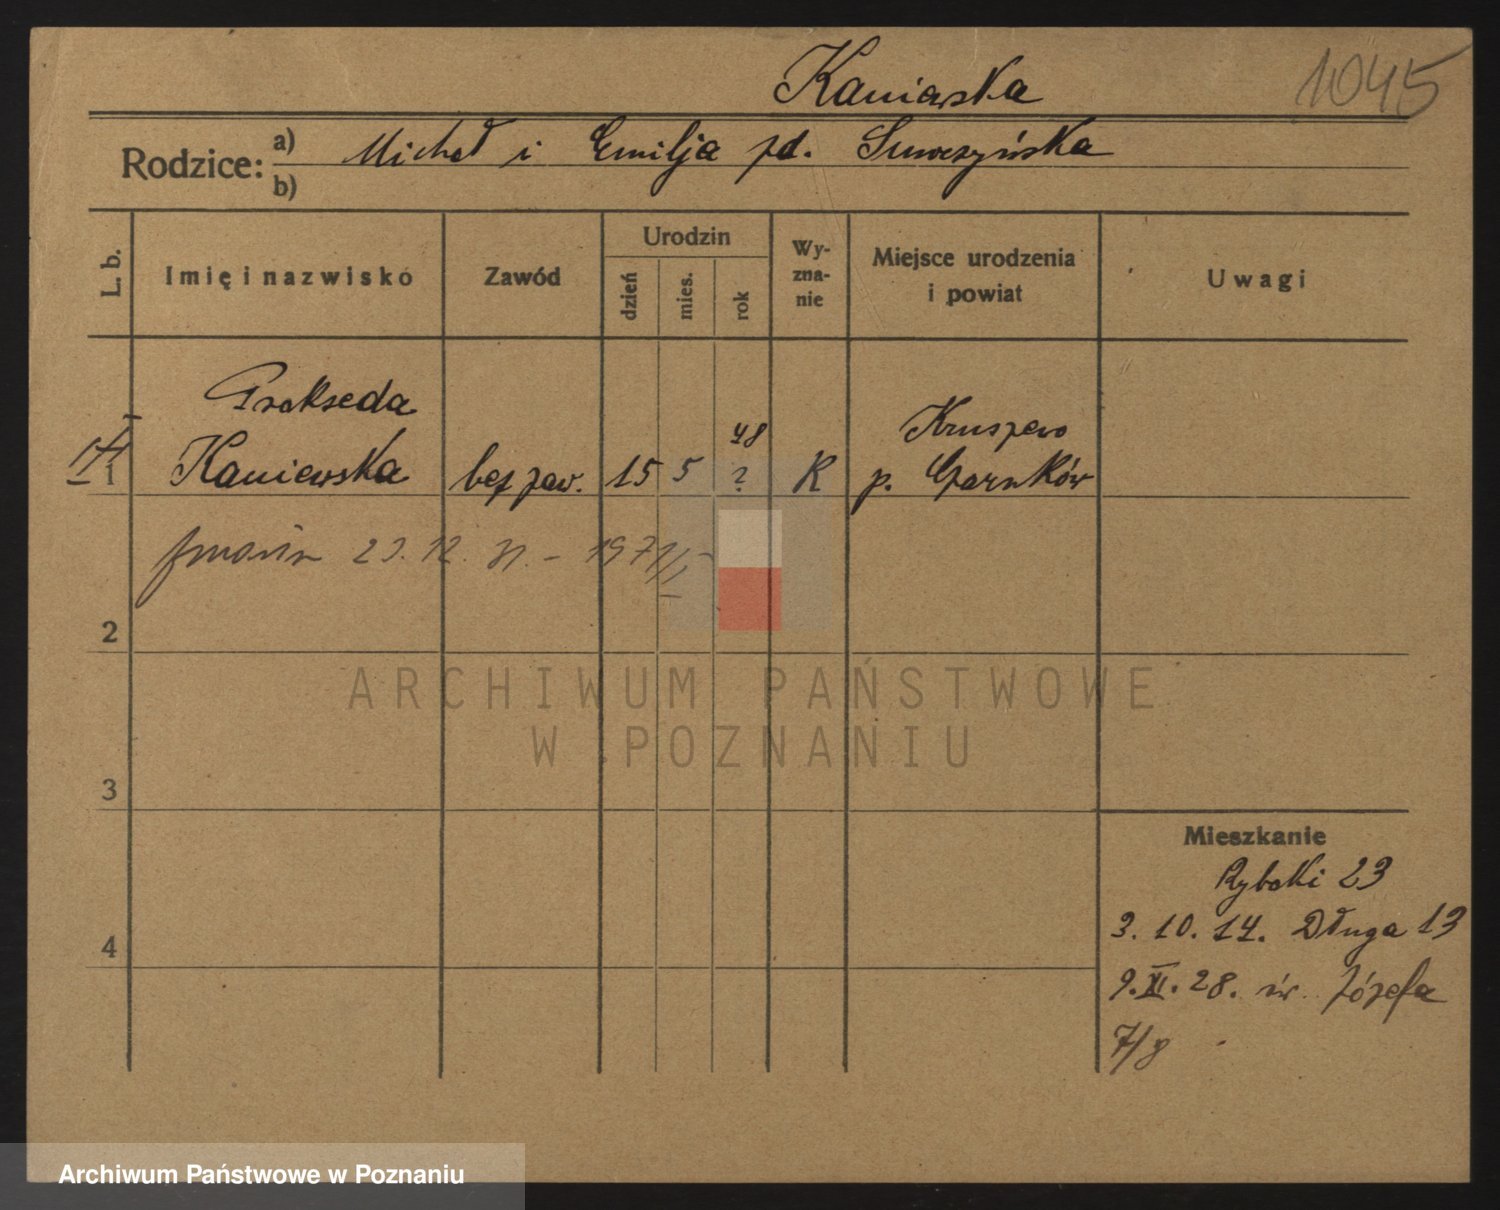 Kaniewska
1045
Rodzice: a) Michał i Emilja zd.
b)
L. b. Imię i nazwisko Zawód Urodzin dzień mies. rok Wyznanie Miejsce urodzenia i powiat Uwagi
Prakseda 48 Kruszewo
Kaniewska bez zaw. 15 5 ? R p. Czarnków
zmarła 23. 12. 31. –
2
3
4
Mieszkanie
Rybaki 23
3. 10. 14. Długa 13
9. XI. 28. św. Józefa
7/8
ARCHIWUM PAŃSTWOWE
W POZNANIU
Archiwum Państwowe w Poznaniu